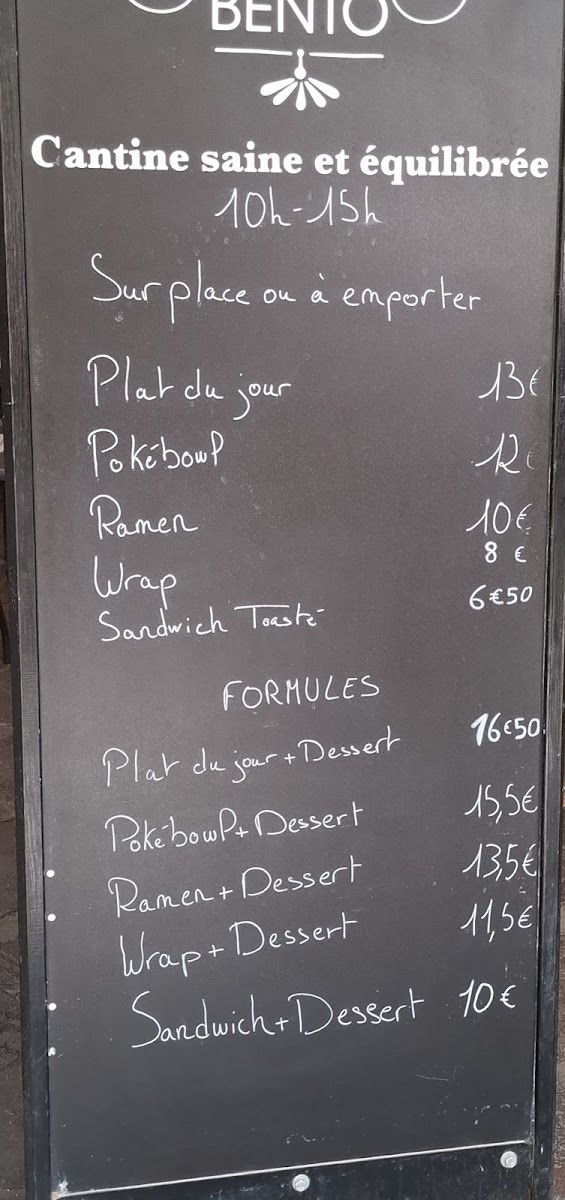 BENTO
Cantine saine et équilibrée
10h-15h
Sur place ou à emporter
Plat du jour 13€
Pokébowl 12€
Ramen 10€
Wrap 8 €
Sandwich Toasté 6€50
FORMULES
Plat du jour + Dessert 16€50
Pokébowl + Dessert 15,5€
Ramen + Dessert 13,5€
Wrap + Dessert 11,5€
Sandwich + Dessert 10€